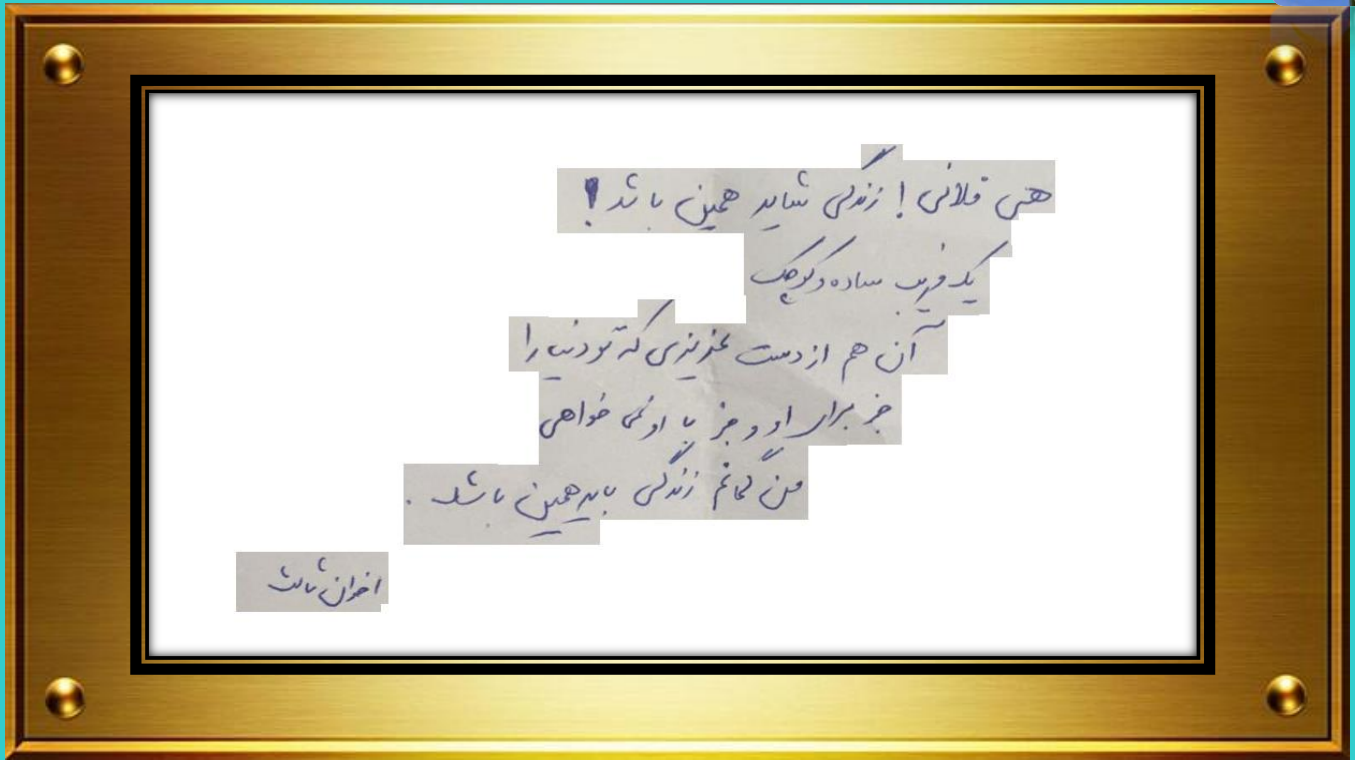 هی فلانی! زندگی شاید همین باشد!
یک فریب ساده و کوچک
آن هم از دست عزیزی که تو دنیا را
جز برای او و جز با او نمی خواهی
من گمانم زندگی باید همین باشد.
اخوان ثالث